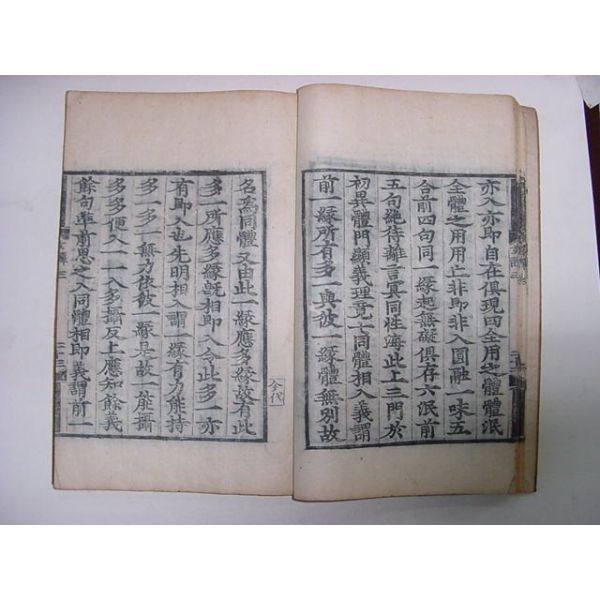 亦入亦即自在俱現四全用之體體泯
全體之用用亡非即非入圓融一味五
合前四句同一緣起無礙俱存六泯前
五句絶待離言㝠同性海此上三門於
初異體門顯義理竟七同體相入義謂
前一緣所有多一與彼一緣體無別故
名爲同體又由此一緣應多緣故有此
多一所應多緣旣相即入令此多一亦
有即入也先明相入謂一緣有力能持
多一多一無力依彼一緣是故一能攝
多多便入一一入多攝反上應知餘義
餘句準前思之八同體相即義謂前一